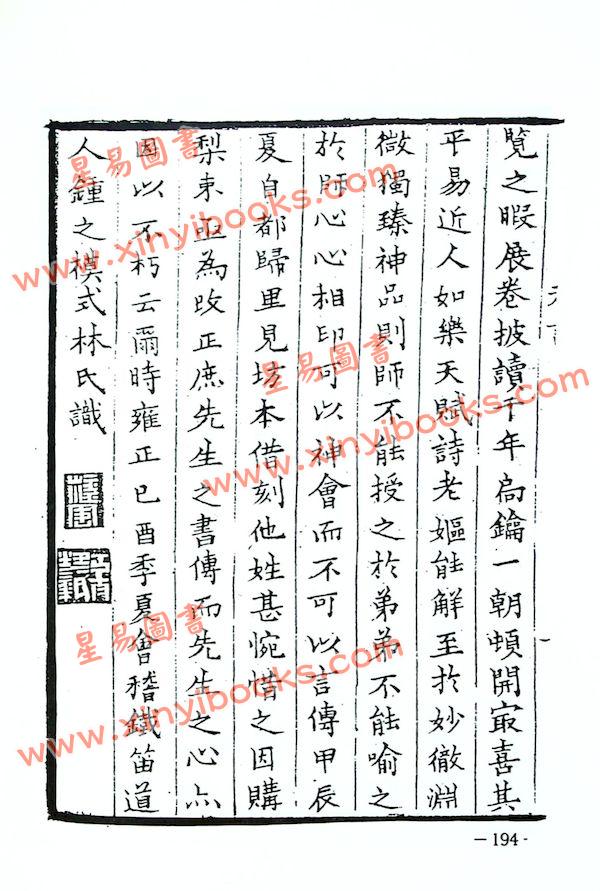 覽之暇展卷披讀千年扃鑰一朝頓開㝡喜其
平易近人如樂天賦詩老嫗能解至於妙徹淵
微獨臻神品則師不能授之於弟弟不能喻之
於師心心相印可以神會而不可以言傳甲辰
夏自都歸里見坊本借刻他姓甚惋惜之因購
梨東亟為改正庶先生之書傳而先生之心亦
因以不朽云爾時雍正己酉季夏會稽鐵笛道
人鍾之模式林氏識
星易圖書
www.xinyibooks.com
星易圖書
www.xinyibooks.com
星易圖書
www.xinyibooks.com
－194-